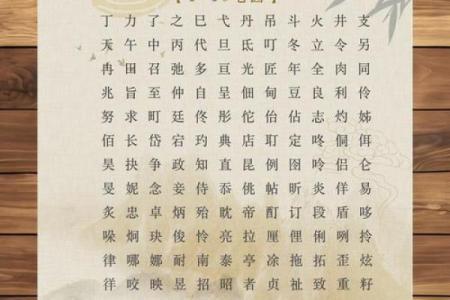 丁力了之巳弋丹吊斗火井支
天午中丙代旦氐叮冬立令另
冉田召弛多亘光匠年全肉同
兆旨至仲自呈佃甸豆良利伶
努求町廷佟彤佗佔志灼姊
佰长岧宕玓典店耵定咚侗佴
昊抉争政知直昆例图呤侣仑
旻妮念妾侍忝佻帖昕炎佯易
炙忠卓炳殆眈帝酊订段盾哆
哚炯玦俊怜亮拉厘俚俐咧拎
律哪娜耐南泰亭凃拖拓歪炫
徉咬映昱招昭者贞亶致重籽